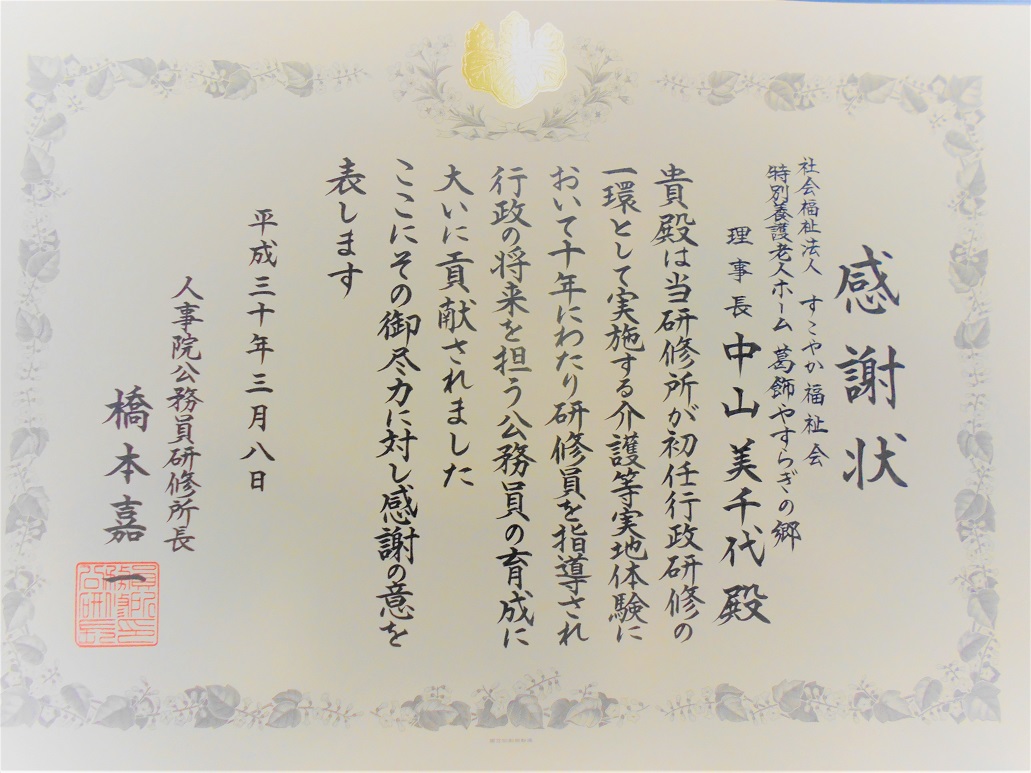 感謝状
社会福祉法人 すこやか福祉会
特別養護老人ホーム 葛飾やすらぎの郷
理事長 中山美千代殿
貴殿は当研修所が初任行政研修の
一環として実施する介護等実地体験に
おいて十年にわたり研修員を指導され
行政の将来を担う公務員の育成に
大いに貢献されました
ここにその御尽力に対し感謝の意を
表します
平成三十年三月八日
人事院公務員研修所長
橋本嘉一